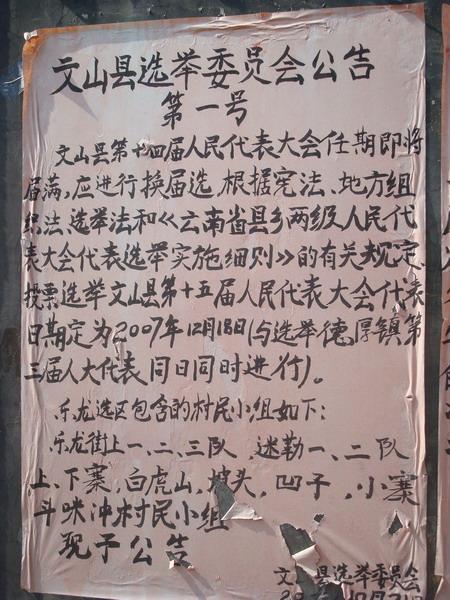 文山县选举委员会公告
第一号
文山县第十四届人民代表大会任期即将
届满,应进行换届选,根据宪法、地方组
织法、选举法和《云南省县乡两级人民代
表大会代表选举实施细则》的有关规定、
投票选举文山县第十五届人民代表大会代表
日期定为2007年12月18日(与选举德厚镇第
三届人大代表同日同时进行)。
乐龙选区包含的村民小组如下:
乐龙街上一、二、三队,迷勒一、二队
上、下寨,白虎山,坡头,凹子,小寨
斗咪冲村民小组
现予公告
文山县选举委员会